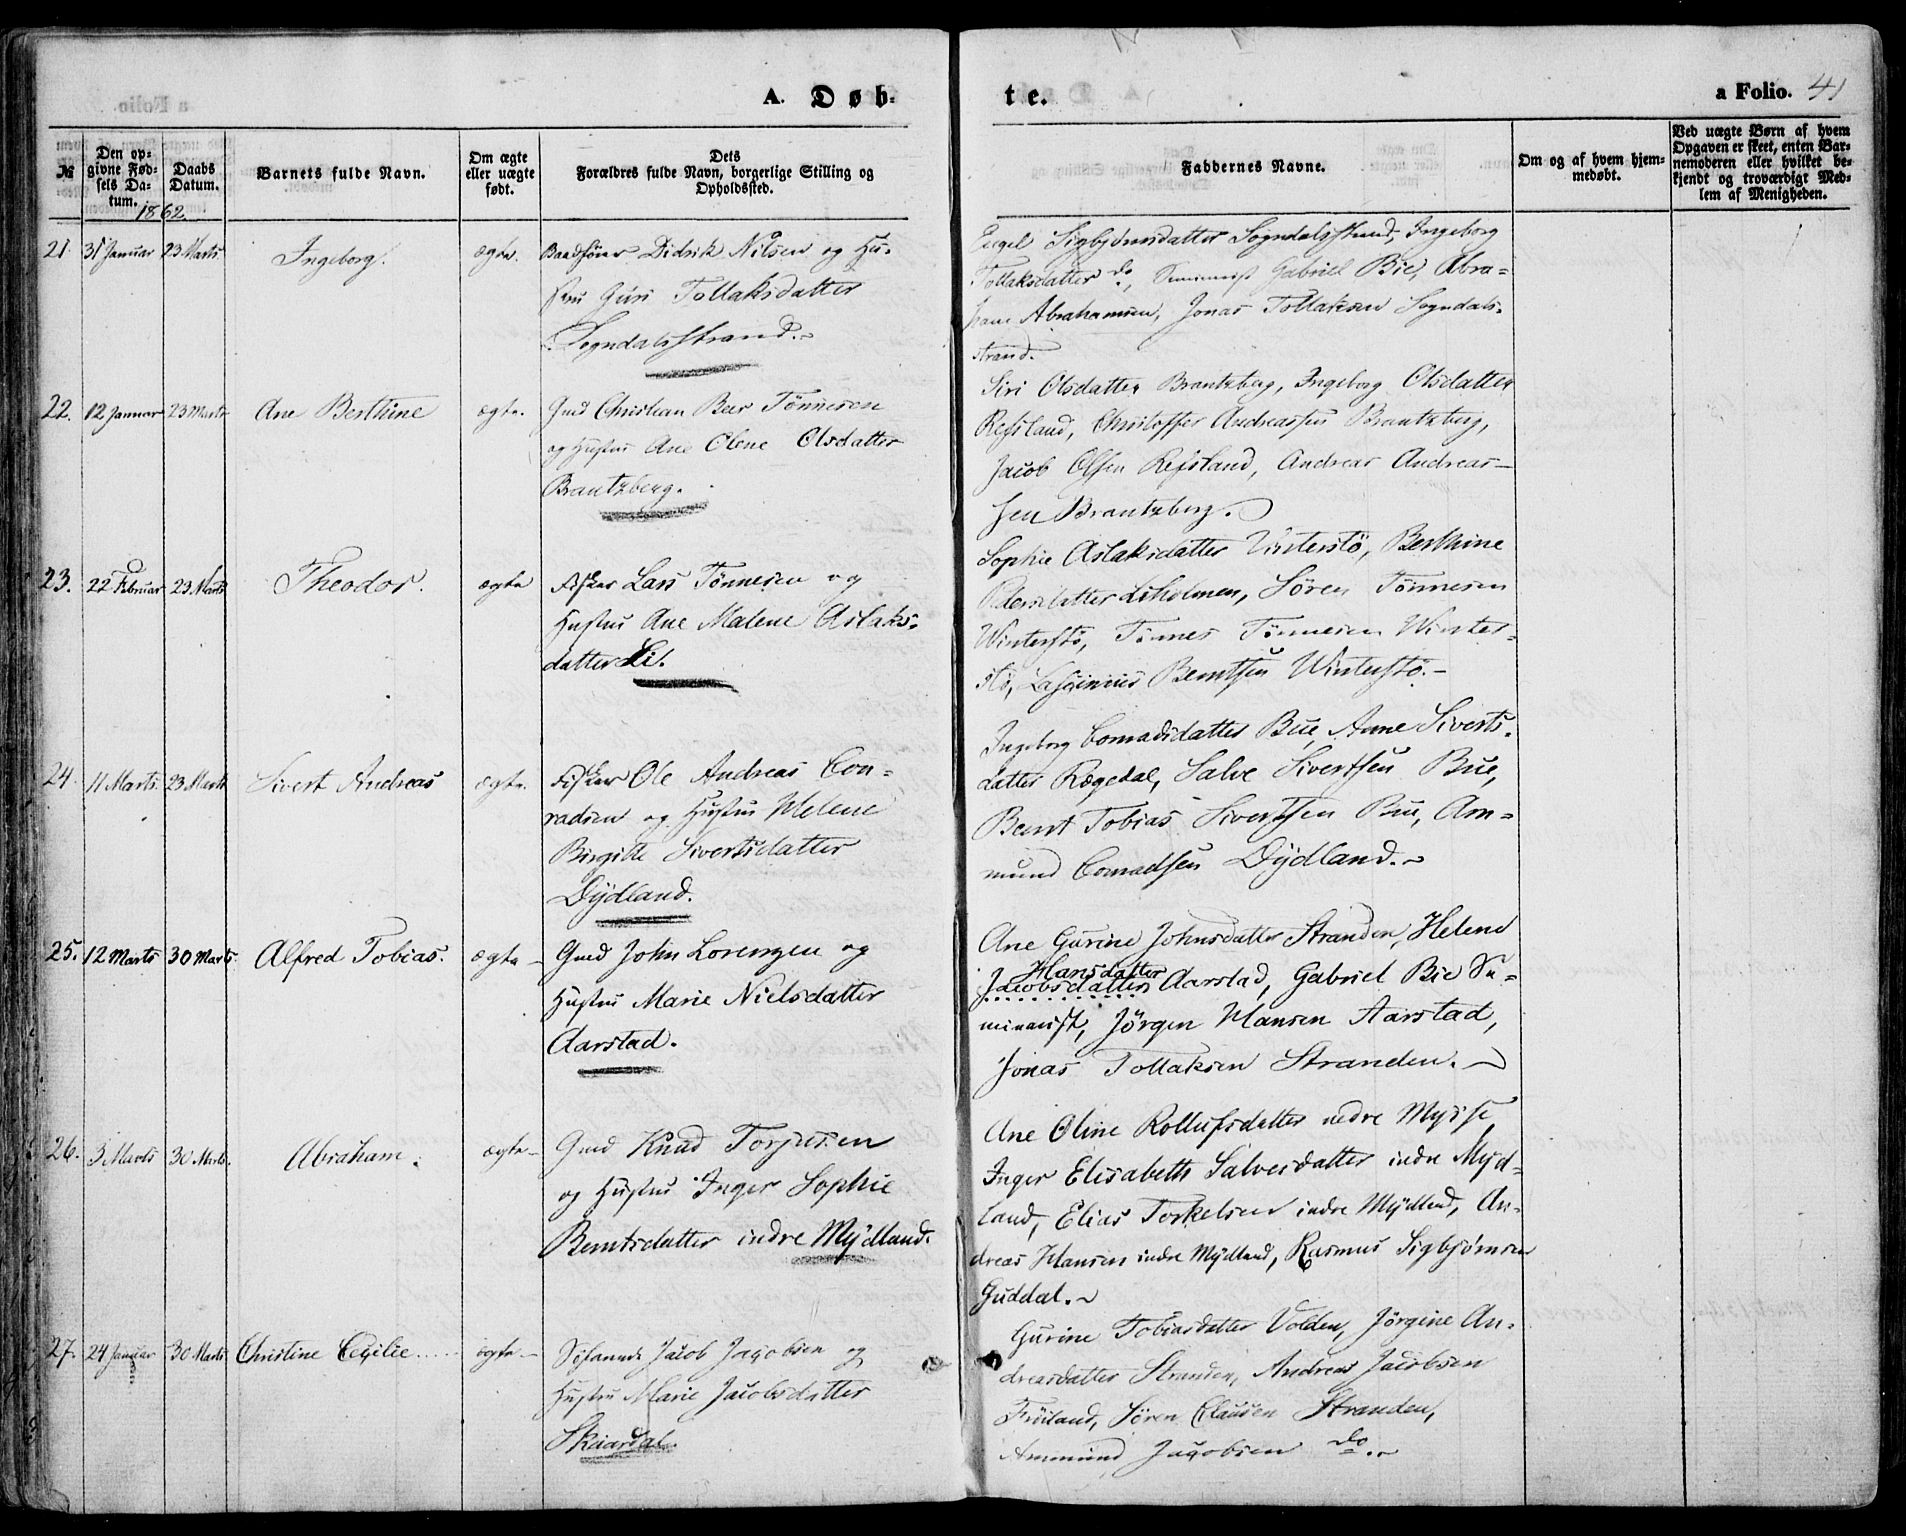 A. Døb-
te.
a Folio. 41
№
Den op-
givne Fød-
sels Da-
tum.
Daabs
Datum.
Barnets fulde Navn.
Om ægte
eller uægte
født.
Dets
Forældres fulde Navn, borgerlige Stilling og
Opholdssted.
Faddernes Navne.
Om og af hvem hjem-
medøbt.
Ved uægte Børn af hvem
Opgaven er skeet, enten Bar-
nemoderen eller hvilket be-
kjendt og troværdigt Med-
lem af Menigheden.
1862
21. 31 Januar 23 Marts Ingeborg. ægte. Baadfører Didrik Nilsen og Hu-
stru Guri Tollaksdatter
Sogndalsstrand.
Engel Sigbjørnsdatter Sogndalsstrand, Ingeborg
Tollaksdatter do, Seminarist Gabriel Bie, Abra-
ham Abrahamsen, Jonas Tollaksen Sogndals-
strand.
22. 12 Januar 23 Marts Ane Berthine ægte. Gmd Christian Beer Tönnesen
og Hustru Ane Olene Olsdatter
Brantzberg.
Siri Olsdatter Brantzberg, Ingeborg Olsdatter
Refsland, Christoffer Andreassen Brantzberg,
Jacob Olsen Refsland, Andreas Andreas-
sen Brantzberg.
23. 22 Februar 23 Marts Theodor. ægte Fisker Lars Tönnesen og
Hustru Ane Malene Aslaks-
datter Li.
Sophie Aslaksdatter Vinterstö, Berthine
Pedersdatter Liholmen, Sören Tönnesen
Winterstö, Tönnes Tönnesen Winter-
stö, Berntsen Winterstö.-
24. 11 Marts. 23 Marts Sivert Andreas ægte. Fisker Ole Andreas Con-
radsen og Hustru Helene
Birgitte Sivertsdatter
Dÿdland.
Ingeborg Conradsdatter Bue, Anne Siverts-
datter Rægedal, Salve Sivertsen Bue,
Bernt Tobias Sivertsen Bue, Am-
mund Conradsen Dÿdland.
25. 12 Marts 30 Marts. Alfred Tobias. ægte Gmd John Lorenzen og
Hustru Marie Nielsdatter
Aarstad.
Ane Gurine Johnsdatter Stranden, Helene
Hansdatter
Jacobsdatter Aarstad, Gabriel Bie Se-
minarist, Jörgen Hansen Aarstad,
Jonas Tollaksen Stranden.
26. 3 Marts 30 Marts. Abraham. ægte Gmd Knud Torjusen
og Hustru Inger Sophie
Berntsdatter indre Mÿdland.
Ane Oline Rollufsdatter nedre Mysse,
Inger Elisabeth Salvesdatter indre Myd-
land, Elias Torkelsen indre Mÿdland, An-
dreas Hansen indre Mÿdland, Rasmus Sigbjørnsen
Guddal.
27. 24 Januar 30 Marts Christine Cecilie..... ægte Sömand Jacob Jacobsen og
Hustru Marie Jacobsdatter
Skaardal.
Gurine Tobiasdatter Volden, Jörgine An-
dreasdatter Stranden, Andreas Jacobsen
Fröiland, Sören Clausen Stranden,
Ammund Jacobsen do.